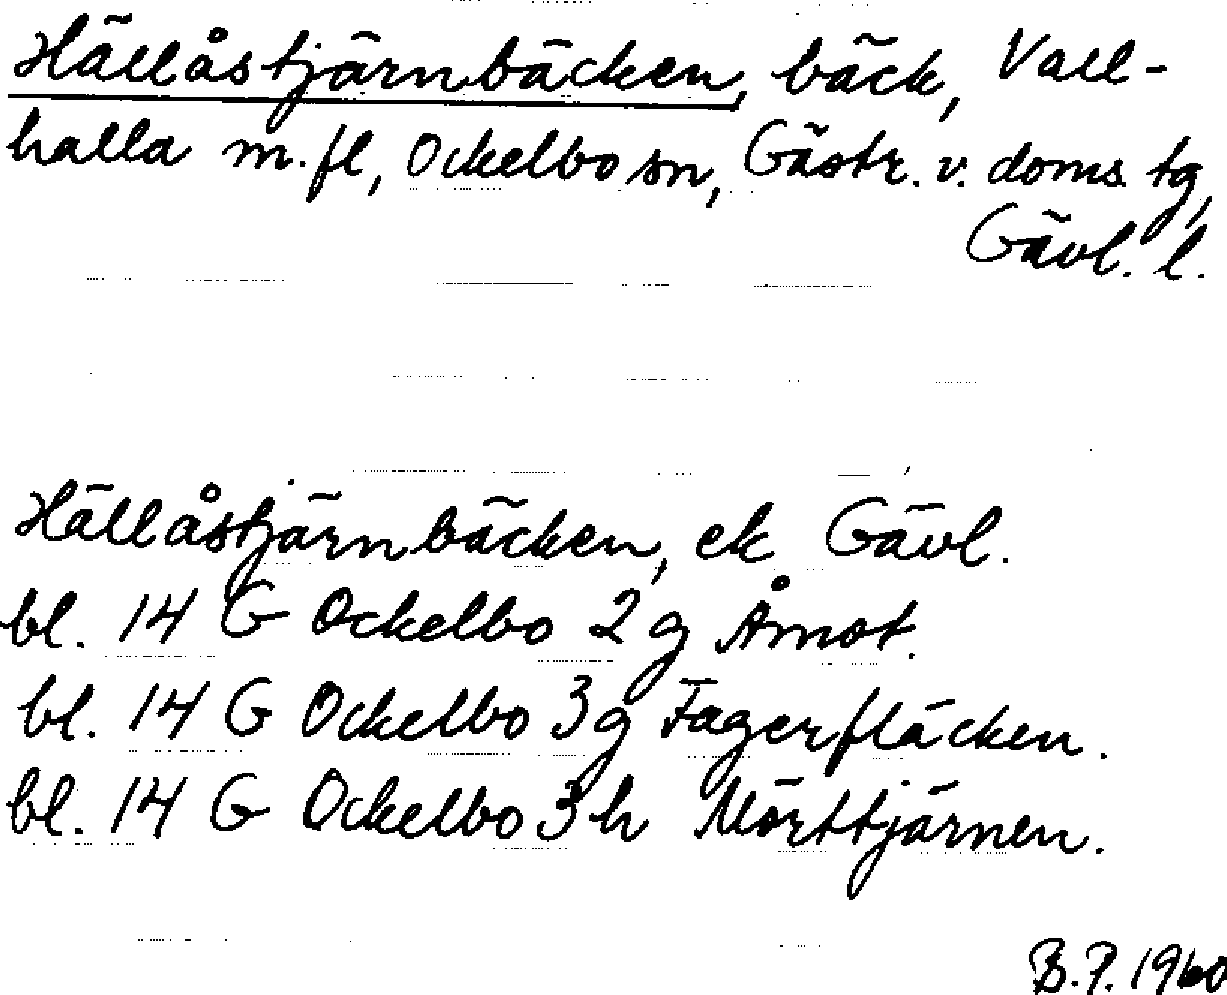 Hällåstjärnbäcken, bäck, Vall-
halla m.fl, Ockelbo sn, Gästr. v. doms. tg,
Gävl. l.
Hällåstjärnbäcken, ek Gävl.
bl. 14 G Ockelbo 2 g Åmot.
bl. 14 G Ockelbo 3g Fagerfläcken.
bl. 14 G Ockelbo 3h Mörttjärnen.
B.P. 1960